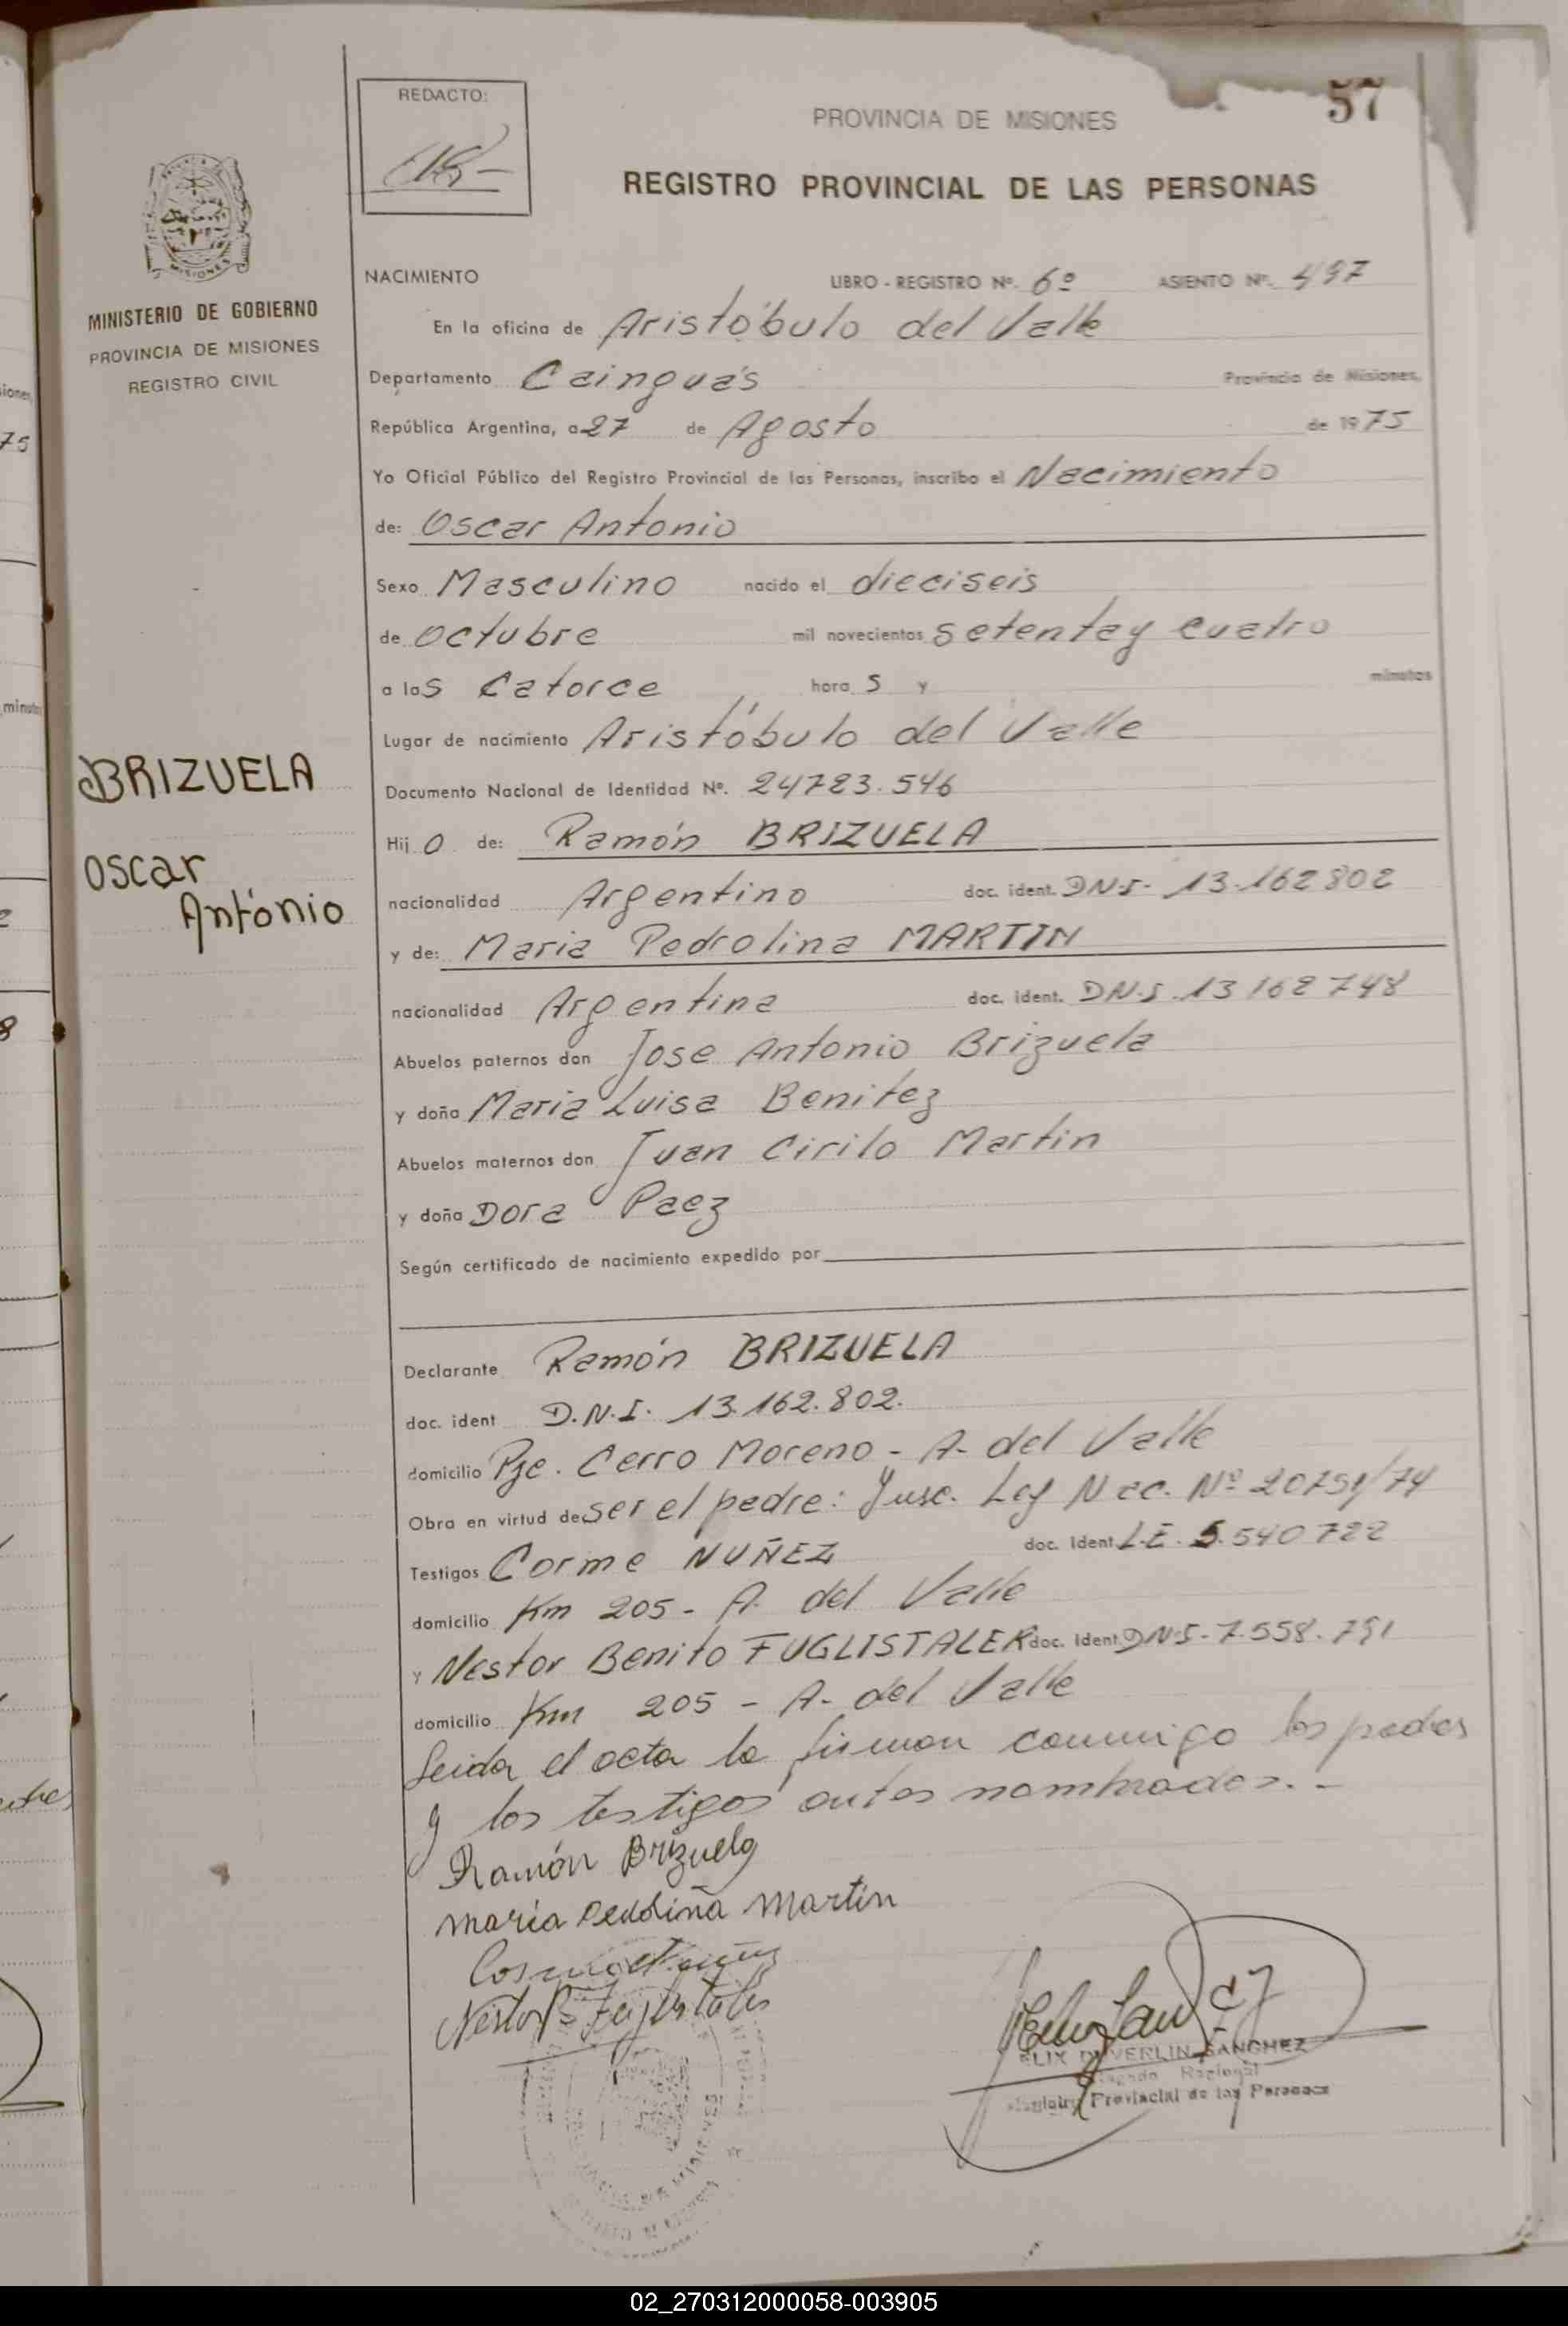 57
REDACTO:
PROVINCIA DE MISIONES
REGISTRO PROVINCIAL DE LAS PERSONAS
MISIONES
MINISTERIO DE GOBIERNO
PROVINCIA DE MISIONES
REGISTRO CIVIL
NACIMIENTO LIBRO - REGISTRO Nº. 6º ASIENTO Nº. 497
En la oficina de Aristóbulo del Valle
Departamento Cainguás Provincia de Misiones,
República Argentina, a 27 de Agosto de 1975
Yo Oficial Público del Registro Provincial de las Personas, inscribo el Nacimiento
de: Oscar Antonio
Sexo Masculino nacido el dieciseis
de Octubre mil novecientos setenta y cuatro
a las Catorce hora s y minutos
Lugar de nacimiento Aristóbulo del Valle
BRIZUELA
Oscar
Antonio
Documento Nacional de Identidad Nº. 24723.546
Hij o de: Ramón BRIZUELA
nacionalidad Argentino doc. ident. DNI- 13.162802
y de: Maria Pedrolina MARTIN
nacionalidad Argentina doc. ident. DN.I. 13162748
Abuelos paternos don Jose Antonio Brizuela
y doña Maria Luisa Benitez
Abuelos maternos don Juan Cirilo Martin
y doña Dora Paez
Según certificado de nacimiento expedido por
Declarante Ramón BRIZUELA
doc. ident D.N.I. 13.162.802.
domicilio Pje. Cerro Moreno - A. del Valle
Obra en virtud de ser el padre: Insc. Ley Nac. Nº 20751/74
Testigos Corme NUÑEZ doc. Ident L.E. 5.540722
domicilio Km 205 - A. del Valle
y Nestor Benito FUGLISTALER doc. Ident DNI-7.558.791
domicilio Km 205 - A. del Valle
Leida el acta la firman conmigo los padres
y los testigos antes nombrados. -
Ramón Brizuela
maria Martin
Nestor B Fuglistaler
FELIX DUVERLIN SANCHEZ
Delegado Regional
Registro Provincial de las Personas
02_270312000058-003905